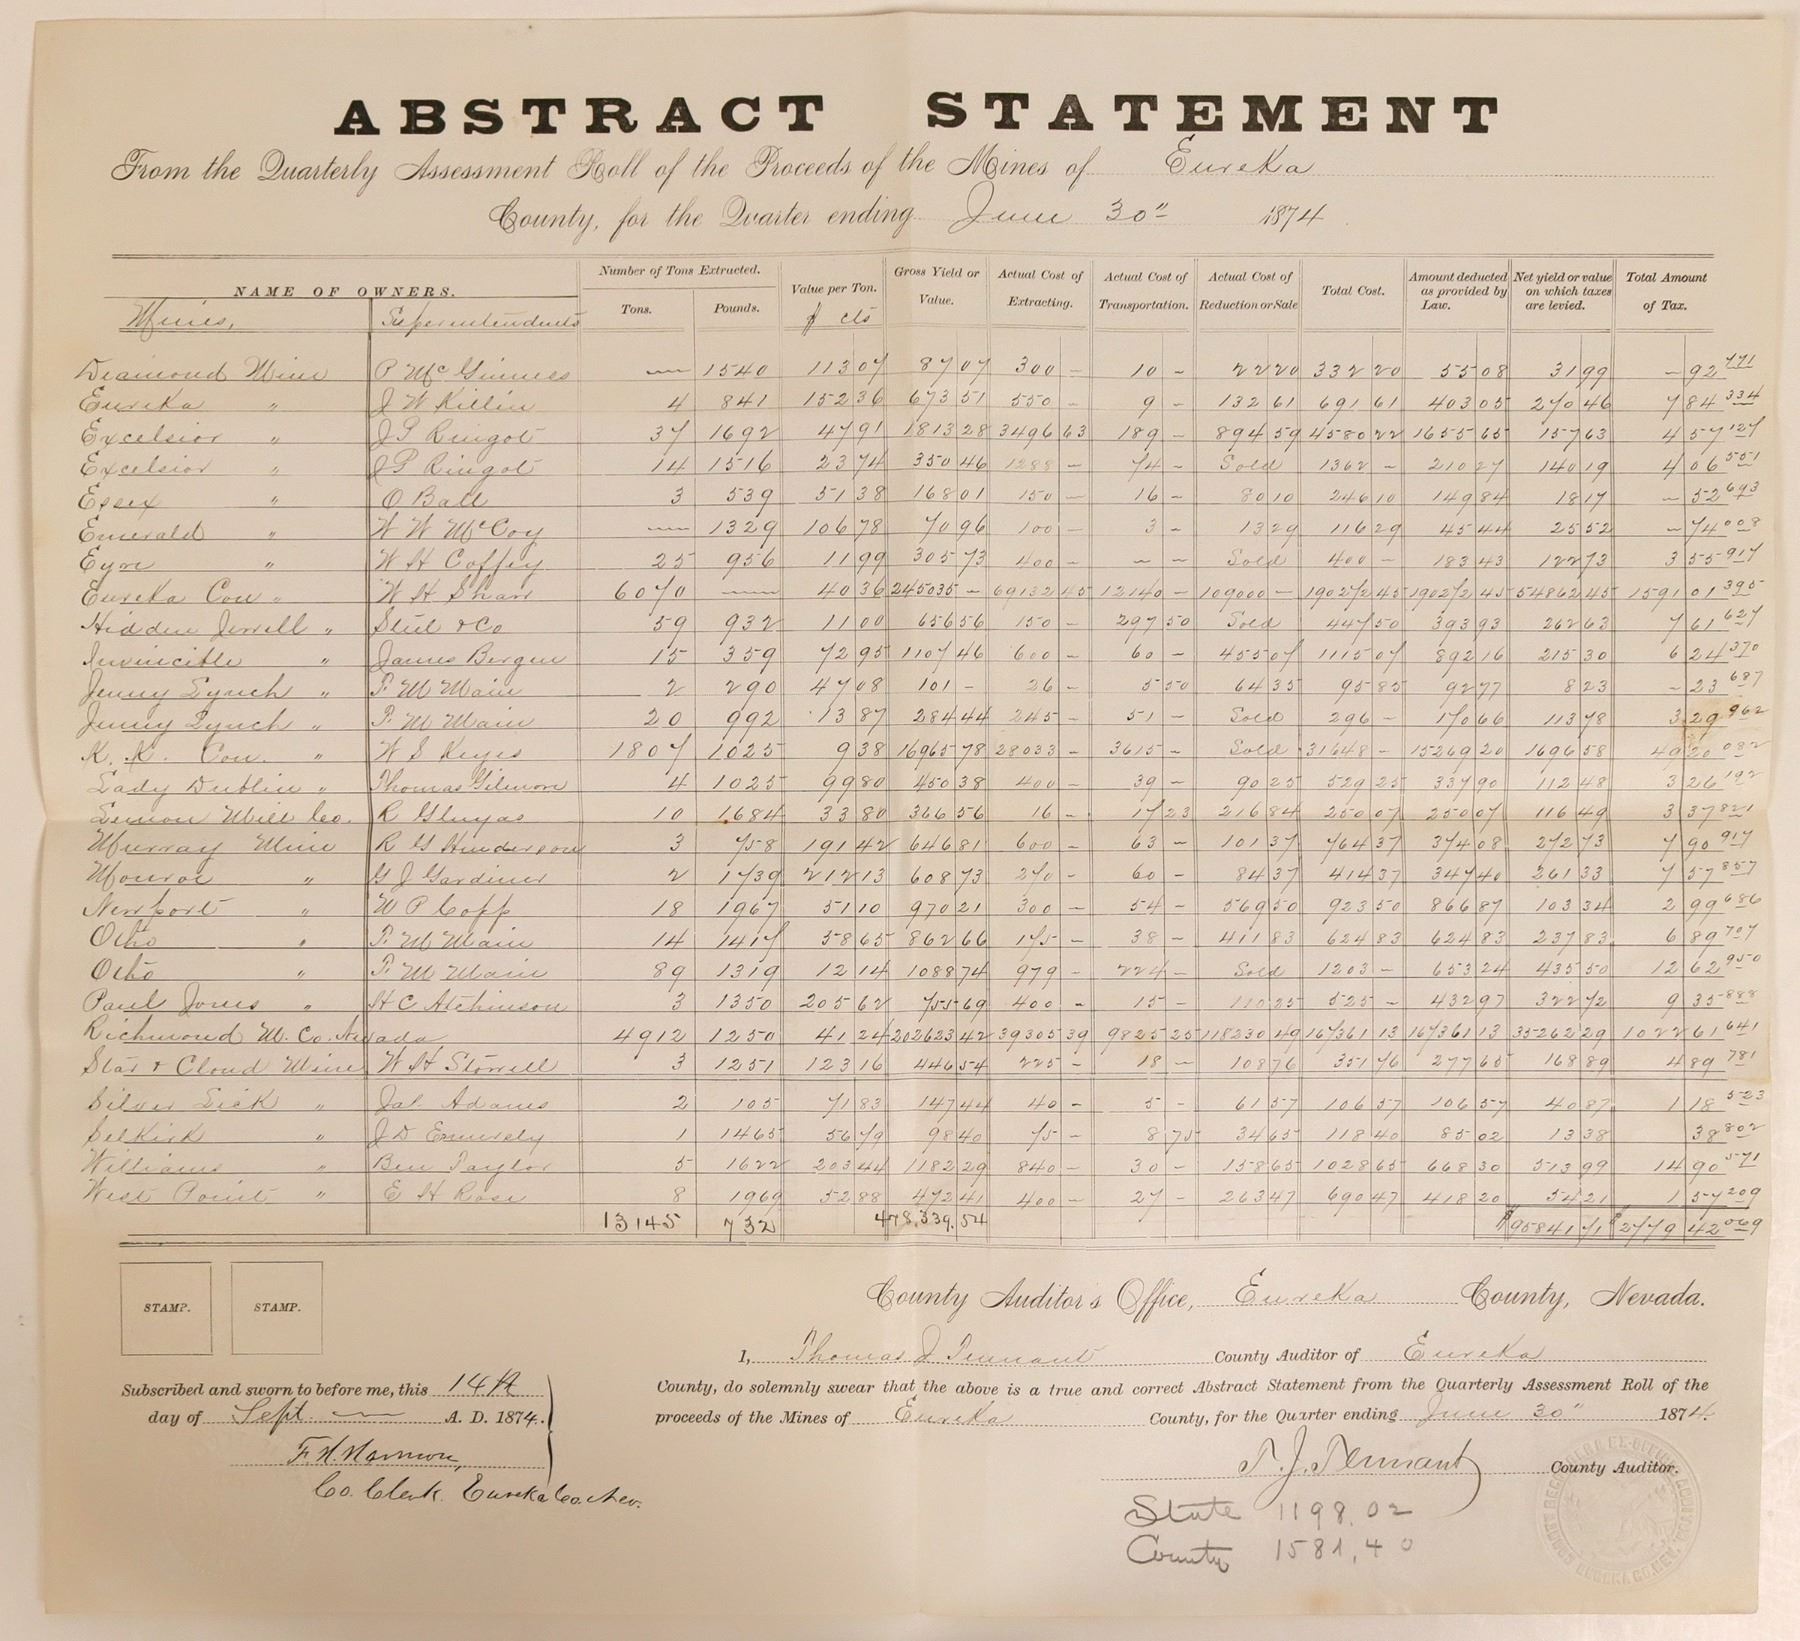 ABSTRACT STATEMENT
From the Quarterly Assessment Roll of the Proceeds of the Mines of Eureka
County, for the Quarter ending June 30" 1874.
NAME OF OWNERS. Number of Tons Extracted. Value per Ton. Gross Yield or Value. Actual Cost of Extracting. Actual Cost of Transportation. Actual Cost of Reduction or Sale Total Cost. Amount deducted as provided by Law. Net yield or value on which taxes are levied. Total Amount of Tax.
Mines, Superintendents Tons. Pounds. $ cts
Diamond Mine P McGinnes — 1540 113 07 87 07 300 - 10 - 22 20 332 20 55 08 31 99 - 92 771
Eureka " J W Killin 4 841 152 36 673 51 550 - 9 - 132 61 691 61 403 05 270 46 7 84 334
Excelsior " J P Ringot 37 1692 47 91 1813 28 3496 63 189 - 894 59 4580 22 1655 65 157 63 4 57 127
Excelsior " J P Ringot 14 1516 23 74 350 46 1288 - 74 - Sold 1362 - 210 27 140 19 4 06 551
Essex " O Ball 3 539 51 38 168 01 150 - 16 - 80 10 246 10 149 84 18 17 - 52 693
Emerald " W W McCoy — 1329 106 78 70 96 100 - 3 - 13 29 116 29 45 44 25 52 - 74 008
Eyre " W H Coffey 25 956 11 99 305 73 400 - - - Sold 400 - 183 43 122 73 3 55 917
Eureka Con " W H Shaw 6070 — 40 36 245035 - 69132 45 12140 - 109000 - 190272 45 190272 45 54862 45 1591 01 395
Hidden Jewell " Steel & Co 59 932 11 00 656 56 150 - 297 50 Sold 447 50 393 93 262 63 7 61 627
Invincible " James Bergen 15 359 72 95 1107 46 600 - 60 - 455 07 1115 07 892 16 215 30 6 24 370
Jenny Lynch " T. M Main 2 290 47 08 101 - 26 - 5 50 64 35 95 85 92 77 8 23 - 23 687
Jenny Lynch " T. M Main 20 992 13 87 284 44 245 - 51 - Sold 296 - 170 66 113 78 3 29 962
K. K. Con. " W S Keyes 1807 1025 9 38 16965 78 28033 - 3615 - Sold 31648 - 15269 20 1696 58 49 20 082
Lady Dublin " Thomas Gilmore 4 1025 99 80 450 38 400 - 39 - 90 25 529 25 337 90 112 48 3 26 192
Lemon Mill Co. R Gluyas 10 1684 33 80 366 56 16 - 17 23 216 84 250 07 250 07 116 49 3 37 821
Murray Mine R G Hinderson 3 758 191 42 646 81 600 - 63 - 101 37 764 37 374 08 272 73 7 90 917
Monroe " G J Gardiner 2 1739 212 13 608 73 270 - 60 - 84 37 414 37 347 40 261 33 7 57 857
Newport " W P Copp 18 1967 51 10 970 21 300 - 54 - 569 50 923 50 866 87 103 34 2 99 686
Otho " T. M Main 14 1417 58 65 862 66 175 - 38 - 411 83 624 83 624 83 237 83 6 89 707
Otho " T. M Main 89 1319 12 14 1088 74 979 - 224 - Sold 1203 - 653 24 435 50 12 62 950
Paul Jones " H C Atchinson 3 1350 205 62 755 69 400 - 15 - 110 25 525 - 432 97 322 72 9 35 888
Richmond M. Co. Nevada 4912 1250 41 24 202623 42 39305 39 9825 25 118230 49 167361 13 167361 13 35262 29 1022 61 641
Star & Cloud Mine W H Stowell 3 1251 123 16 446 54 225 - 18 - 108 76 351 76 277 65 168 89 4 89 781
Silver Lick " Jas. Adams 2 105 71 83 147 44 40 - 5 - 61 57 106 57 106 57 40 87 1 18 523
Selkirk " J D Emersly 1 1465 56 79 98 40 75 - 8 75 34 65 118 40 85 02 13 38 38 802
Williams " Ben Taylor 5 1622 203 44 1182 29 840 - 30 - 158 65 1028 65 668 30 513 99 14 90 571
West Point " E H Rose 8 1969 52 88 472 41 400 - 27 - 263 47 690 47 418 20 54 21 1 57 209
13145 732 478,339.54 $95841 71 $2779 42 069
STAMP. STAMP.
County Auditor's Office, Eureka County, Nevada.
I, Thomas J Tennant County Auditor of Eureka
County, do solemnly swear that the above is a true and correct Abstract Statement from the Quarterly Assessment Roll of the
proceeds of the Mines of Eureka County, for the Quarter ending June 30" 1874.
T. J. Tennant County Auditor.
Subscribed and sworn to before me, this 14th
day of Sept. — A. D. 1874.
F. H. Harmon,
Co. Clerk. Eureka Co. Nev.
State 1198.02
County 1581.40